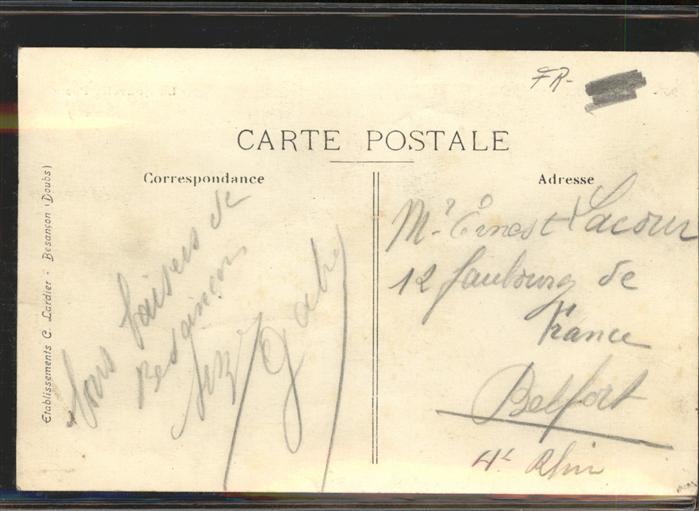 FR-
CARTE POSTALE
Correspondance
Adresse
Etablissements C. Lardier - Besançon (Doubs)
Bons baisers de
Besançon
Mr Ernest Lacour
12 faubourg de
France
Belfort
Ht Rhin